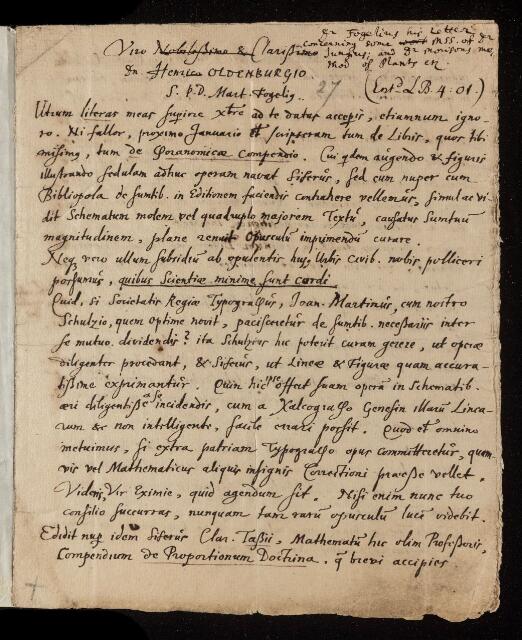 Dr Fogelius his Letter
concerning some MSS. of Dr
Jungius; and Dr Morisons me
thod of Plants etc.
Viro Nobilissimo & Clarissimo
Dn. Henrico OLDENBURGIO
S. P.D. Mart. Fogelig. 27
(Entd. L.B. 4: 01.)
Utrum literas meas supire xtre ad te datas accepis, etiamnum igno-
ro. Ni fallor, proximo Januario et scripseram tum de Libris, quos tibi
missimg, tum de Phoranomicae Compendio. Cui qdem augendo & figuris
illustrando sedulam adhuc operam navat Siferus, sed cum nuper cum
Bibliopola de sumtib. in Editionem faciendis contrahere vellemus, simul ac vi-
dit Schematum molem vel quadruplo majorem Textu, causatus sumtuum
magnitudinem, plane renuit Opusculu imprimendu curare.
Neq vero ullum subsidiu ab opulentis hujs Urbis Civib. nobis polliceri
possumus, quibus Scientiae minime sunt cordi.
Quid, si Societatis Regiae Typographus, Joan. Martinus, cum nostro
Schulzio, quem optime novit, pacisceretur de sumtib. necessariis inter
se mutuo dividendis? ita Schulzius hic poterit curam gerere, ut operae
diligenter procedant, & Siferus, ut Lineae & Figurae quam accura-
tissime exprimantur. Quin hic offert suam opera in Schematib.
aeri diligentissie incidendis, cum a Xalcographo Genesin illaru Linea-
rum & non intelligente, facile errari possit. Quod et omnino
metuimus, si extra patriam Typographo opus committeretur, quam-
vis vel Mathematicus aliquis insignis Correctioni praeesse vellet.
Videris, Vir Eximie, quid agendum sit. Nisi enim nunc tuo
consilio succurras, nunquam tam raru opusculu luce videbit.
Edidit nup idem Siferus Clar. Tassii, Mathematu hic olim Professoris,
Compendium de Proportionum Doctrina. q brevi accipies